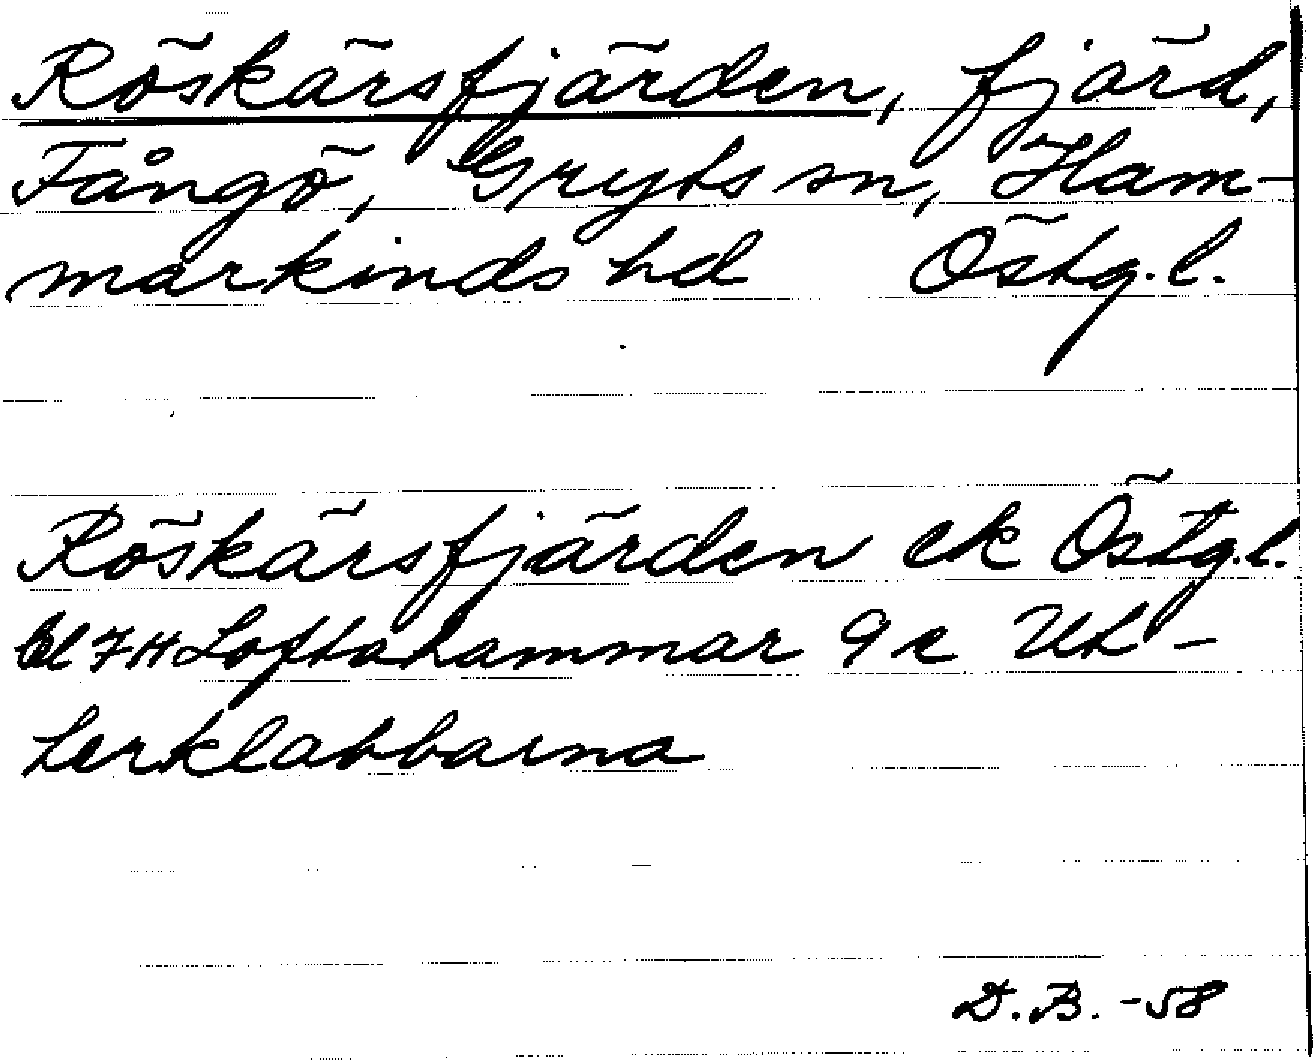 Röskärsfjärden, fjärd,
Fångö, Gryts sn, Ham-
markinds hd Östg.l.
Röskärsfjärden ek Östg.l.
bl 7H Loftahammar 9c Ut-
terklabbarna
D.B. -58